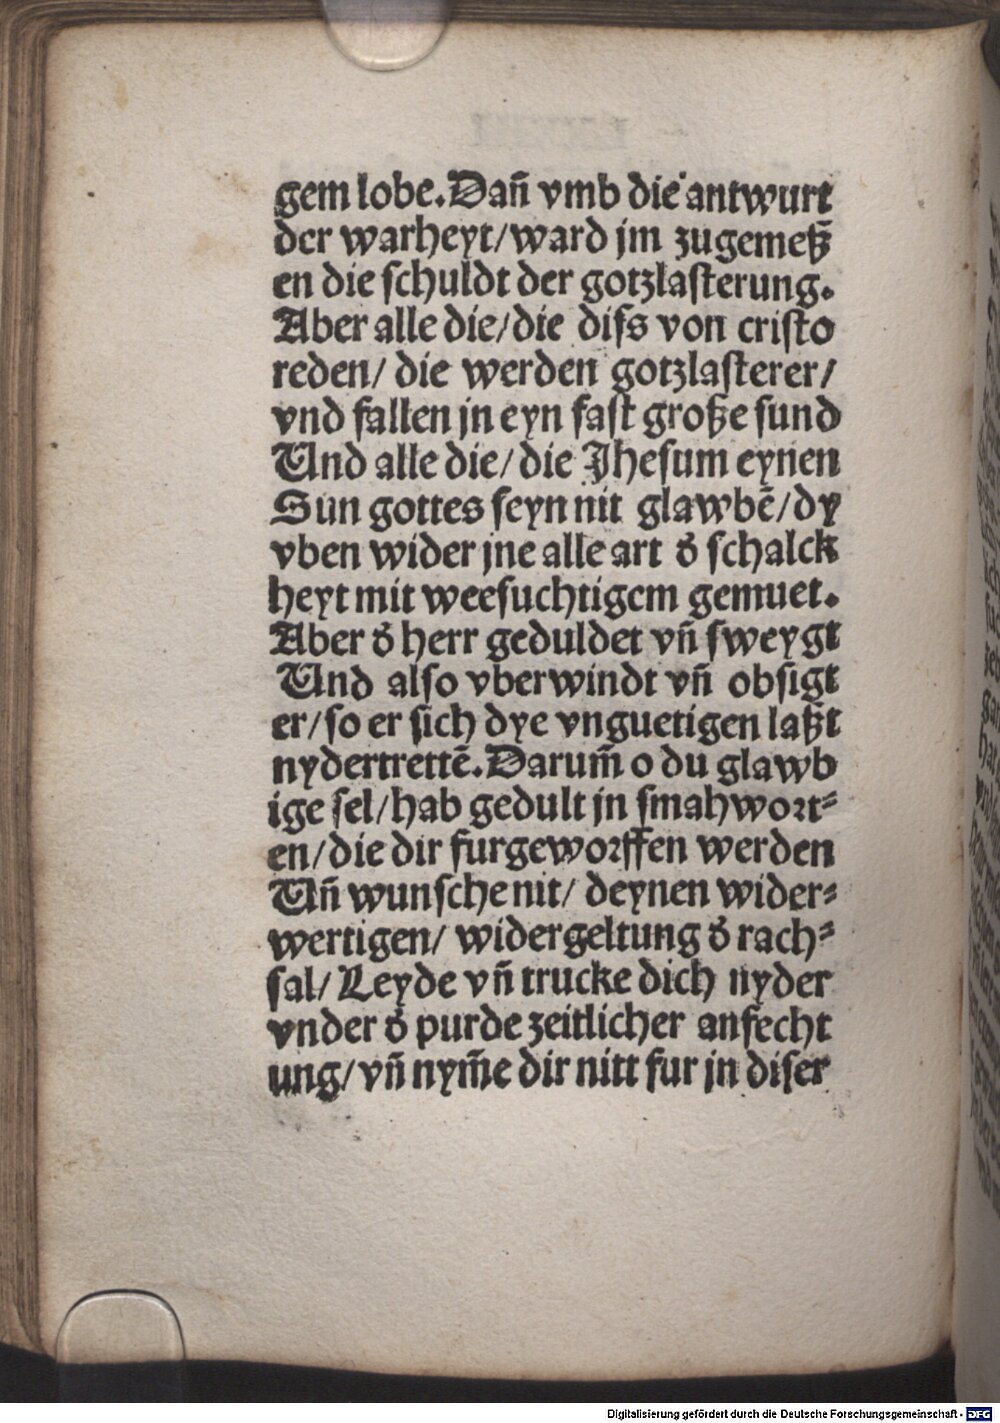 gem lobe. Dañ vmb die antwurt
der warheyt/ward jm zugemeß
en die schuldt der gotzlasterung.
Aber alle die/die diss von cristo
reden/ die werden gotzlasterer/
vnd fallen jn eyn fast große sund
Und alle die/ die Jhesum eynen
Sun gottes seyn nit glawbē/dy
vben wider jne alle art d̕ schalck
heyt mit weesuchtigem gemuet.
Aber d̕ herr geduldet vñ sweygt
Und also vberwindt vñ obsigt
er/so er sich dye vnguetigen laßt
nydertrettē. Darum̄ o du glawb
ige sel/hab gedult jn smahwort⸗
en/die dir furgeworffen werden
Uñ wunsche nit/ deynen wider⸗
wertigen/ widergeltung d̕ rach⸗
sal/ Leyde vñ trucke dich nyder
vnder d̕ purde zeitlicher anfecht
ung/vñ nym̄e dir nitt fur jn diser
Digitalisierung gefördert durch die Deutsche Forschungsgemeinschaft - DFG